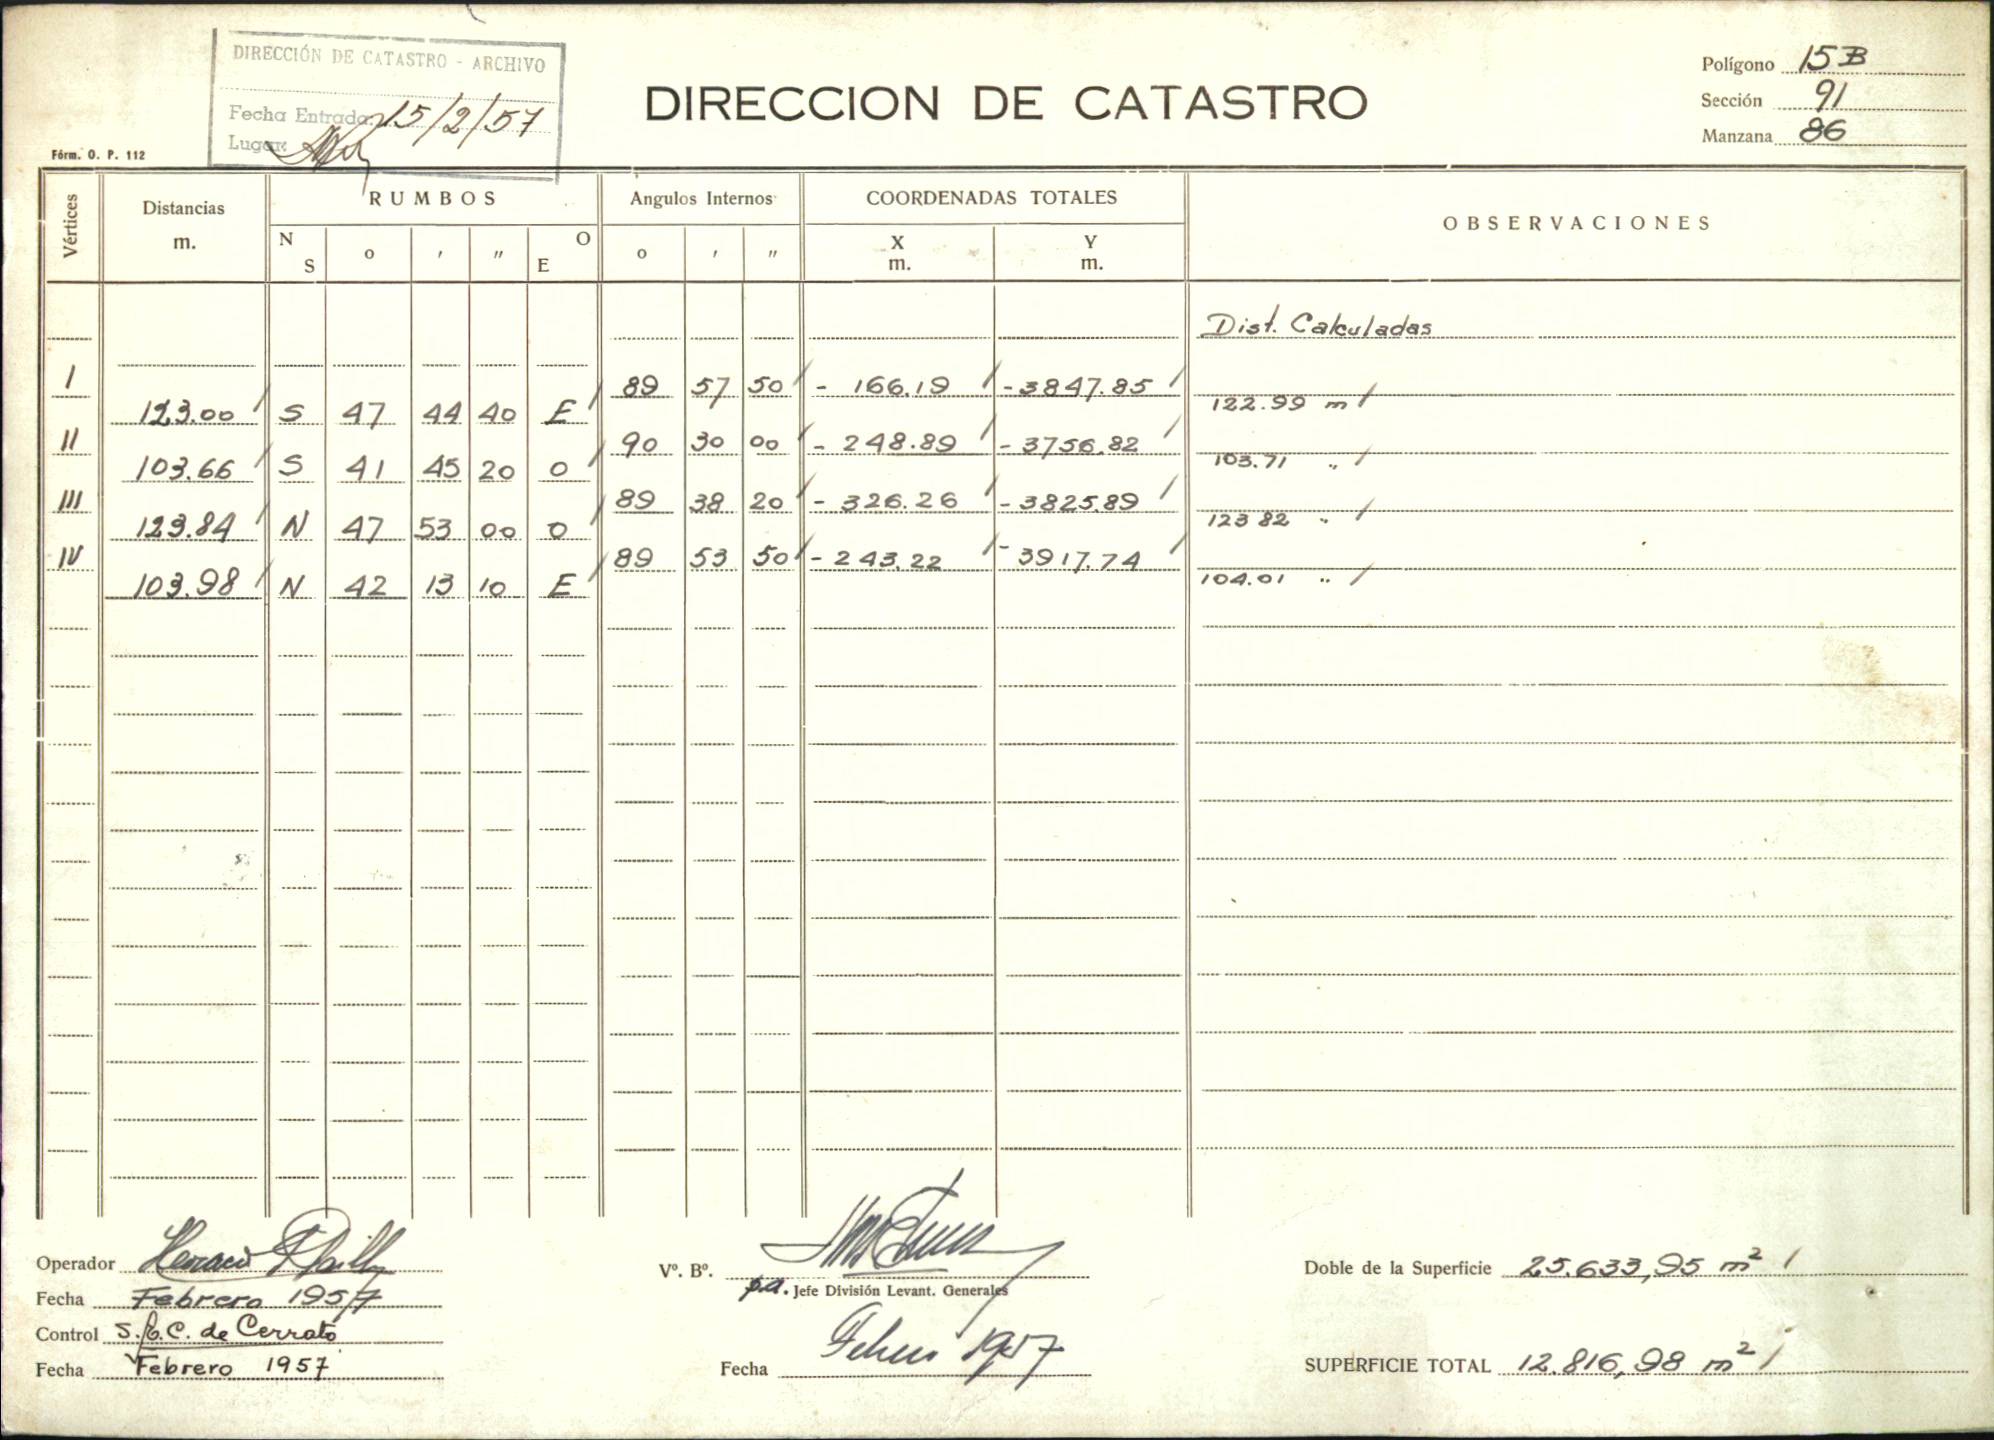 DIRECCIÓN DE CATASTRO - ARCHIVO
Fecha Entrada 15/2/57
Lugar:
Fórm. O. P. 112
DIRECCION DE CATASTRO
Polígono 15B
Sección 91
Manzana 86
Vértices Distancias m. RUMBOS N S o ' " O E Angulos Internos o ' " COORDENADAS TOTALES X m. Y m. OBSERVACIONES
Dist. Calculadas
I 89 57 50 - 166.19 -3847.85
123.00 S 47 44 40 E 122.99 m
II 90 30 00 - 248.89 - 3756.82
103.66 S 41 45 20 O 103.71 "
III 89 38 20 - 326.26 -3825.89
123.84 N 47 53 00 O 123 82 "
IV 89 53 50 - 243.22 - 3917.74
103.98 N 42 13 10 E 104.01 "
Operador
Fecha Febrero 1957
Control S. C. de Cerrato
Fecha Febrero 1957
Vº. Bº.
p.a. Jefe División Levant. Generales
Fecha 1957
Doble de la Superficie 25.633,95 m²
SUPERFICIE TOTAL 12.816,98 m²